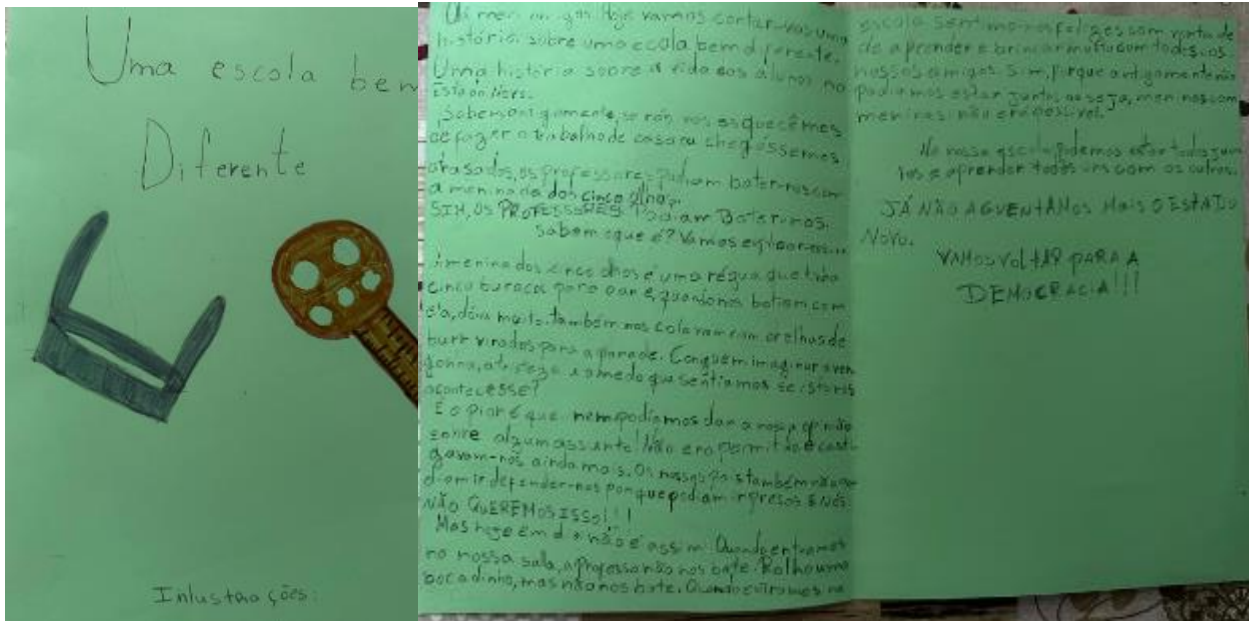 Uma escola bem
Diferente
Inlustrações:
gas! Hoje vamos contar-vos uma
história, sobre uma ecola bem diferente.
Uma história sobre a vida dos alunos no
Estado Novo.
Sabem antigamente, se nós nos esquecêmes
de fazer o trabalho de casa ou chegássemos
atrasados, os professores podiam bater-nos com
a menina dos cinco olhos.
SIM, OS PROFESSORES Podiam Bater-nos.
Sabem o que é? Vamos explicar-vos...
A menina dos cinco olhos é uma régua que tinha
cinco buracos para o ar e, quando nos batiam com
ela, doia muito. também nos colocavam com orelhas de
burro virados para a parede. Conguem imaginar a ver
gonha, a tristeza e o medo que sentíamos se isto nos
acontecesse?
E o pior é que nem podíamos dar a nossa opinião
sobre algum assunto! Não era permitido e casti
gavam-nos ainda mais. Os nossos pais também não po
diam ir defender-nos porque podiam ir presos E NÓS
NÃO QUEREMOS ISSO!!!
Mas hoje em dia não é assim. Quando entramos
na nossa sala, a professora não nos bate. Ralha um
bocadinho, mas não nos bate. Quando entramos na
escola sentimo-nos felizes com vontade
de aprender e brincar muito com todos os
nossos amigos. Sim, porque antigamente não
podíamos estar juntos, ou seja, meninos com
meninas não era possível.
Na nossa escola podemos estar todos jun
tos e aprender todos uns com os outros.
JÁ NÃO AGUENTAMOS MAIS O ESTADO
NOVO.
VAMOS VOLTAR PARA A
DEMOCRACIA!!!